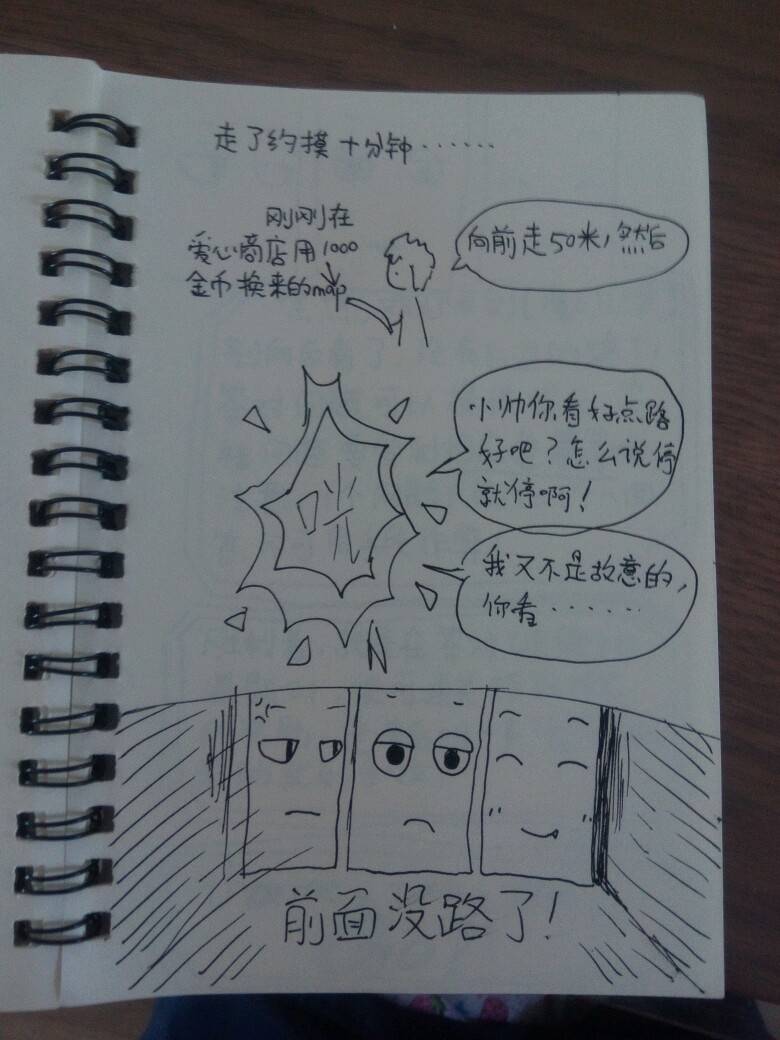 走了约摸十分钟······
刚刚在
爱心商店用1000
金币换来的map
向前走50米,然后
小帅你看好点路
好吧?怎么说停
就停啊!
咣
我又不是故意的,
你看······
前面没路了!